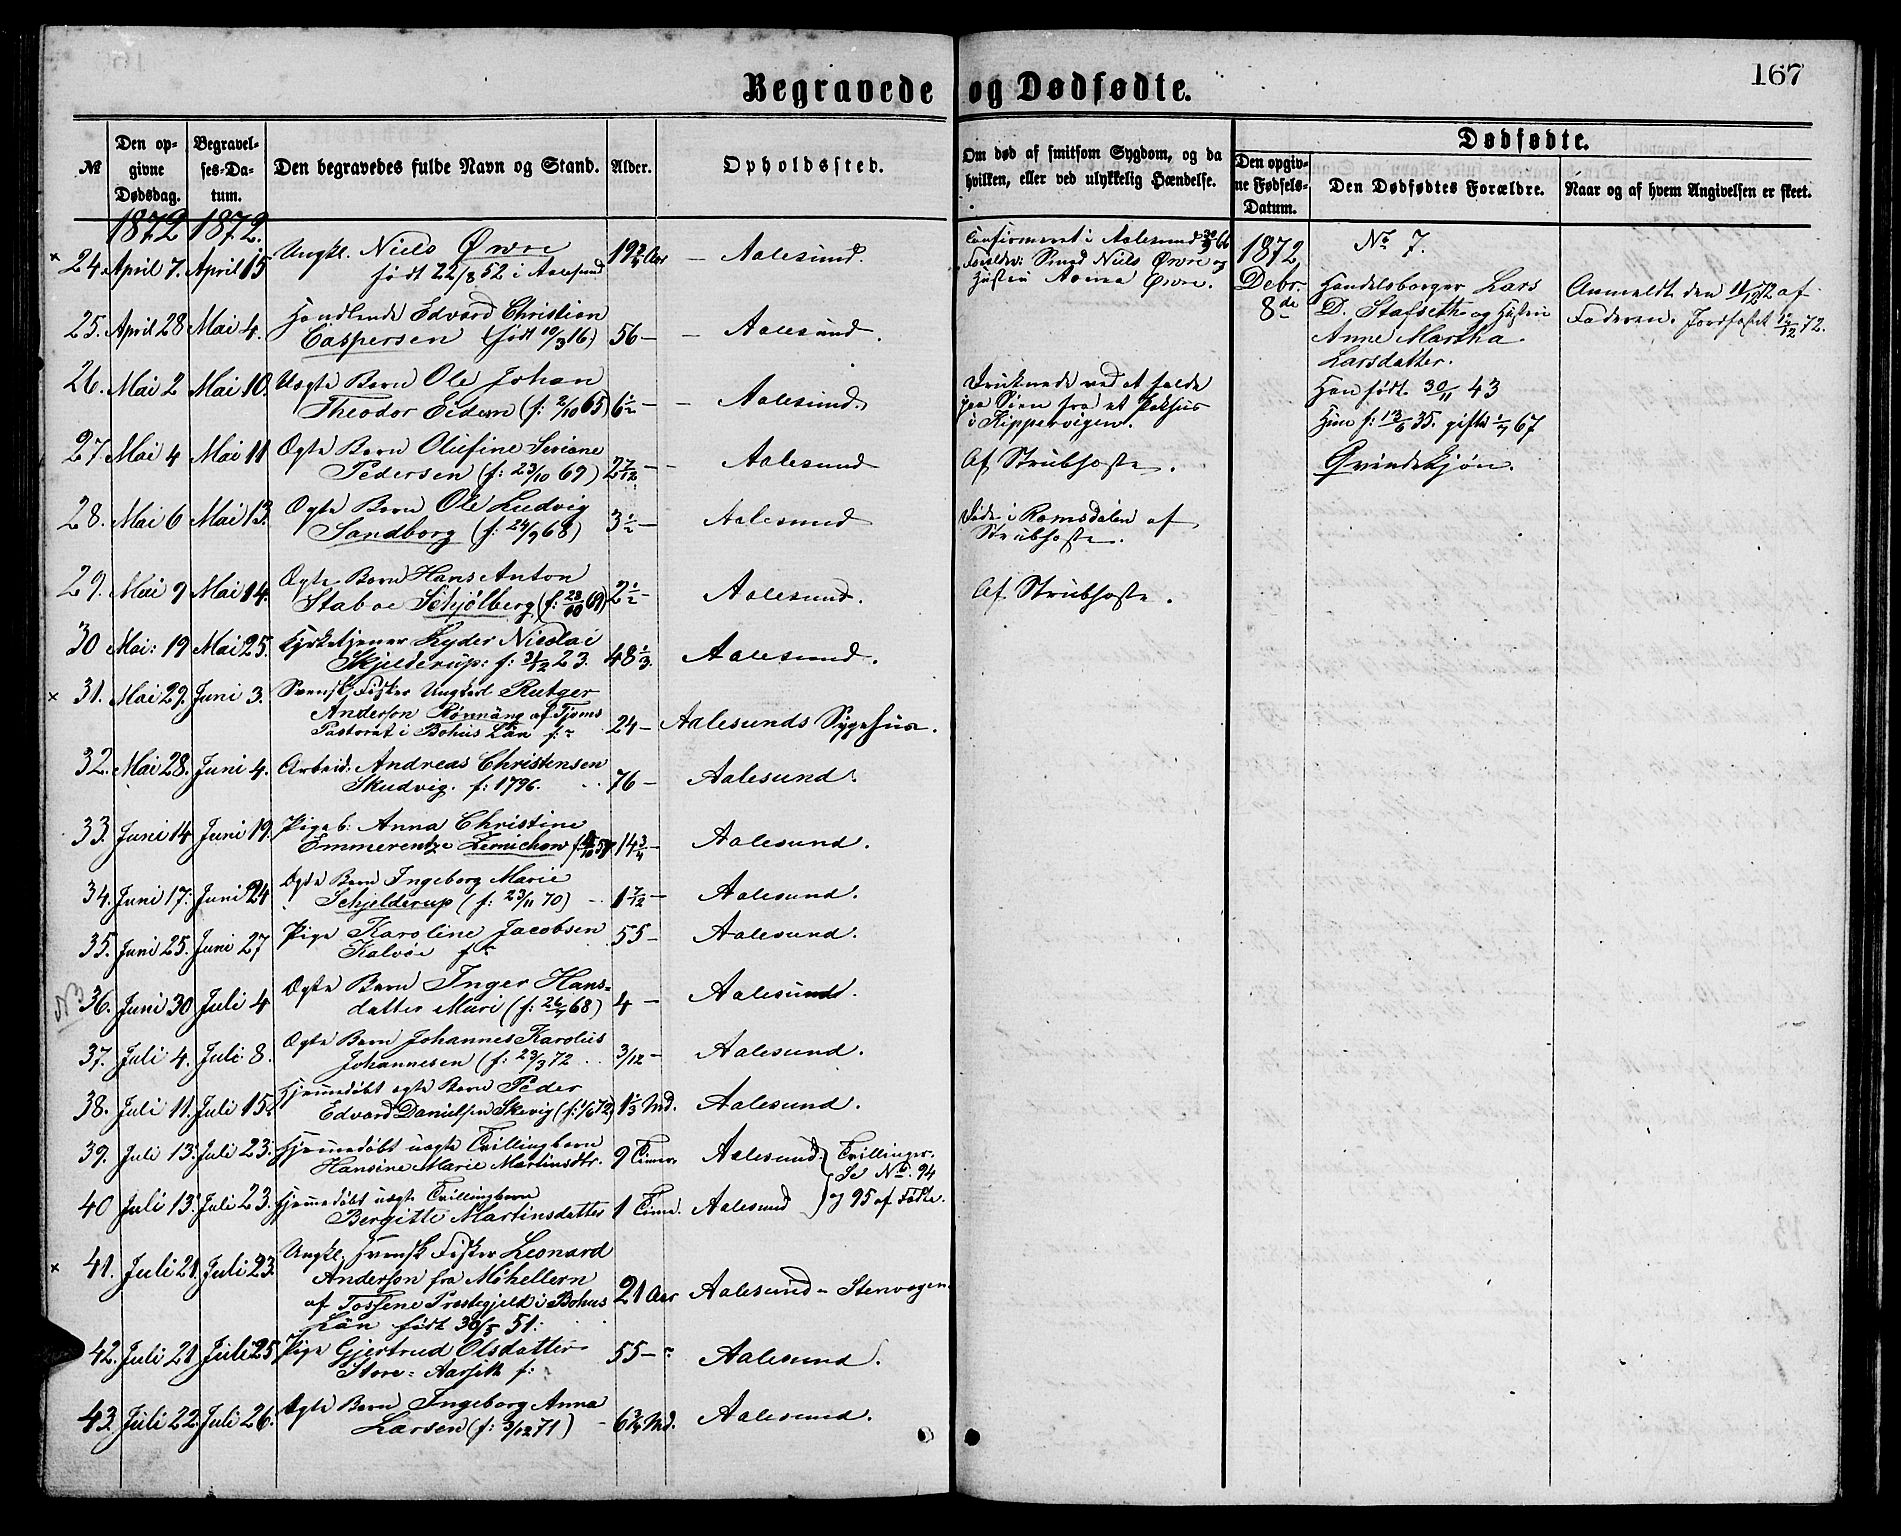 167
Begravede og Dødfødte.
№
Den opgivne Dødsdag.
Begravelses-Datum.
Den begravedes fulde Navn og Stand.
Alder.
Opholdssted.
Om død af smitsom Sygdom, og da hvilken, eller ved ulykkelig Hændelse.
Dødfødte.
Den opgivne Fødsels-Datum.
Den Dødfødtes Forældre.
Naar og af hvem Angivelsen er skeet.
1872 1872.
× 24. April 7. April 15 Ungkl. Niels Øwre 19 3/4 Aar – Aalesund. Confirmeret i Aalesund 66
født 22/8 52 i Aalesund Forældre: Smed Niels Øwre og
Hustru Anna Øwre.
25. April 28 Mai 4. Handlende Edvard Christian
Caspersen (født 10/3 16) 56 – – Aalesund.
26. Mai 2 Mai 10. Uægte Barn Ole Johan Druknede ved at falde
Theodor Eidem (f: 2/10 65) 6 1/2 – – Aalesund. paa Søen fra et Pakhus
i Kippervigen.
27. Mai 4 Mai 11 Ægte Barn Olufine Seriane
Pedersen (f: 23/10 69) 2 7/12 – – Aalesund Af Strubhoste.
28. Mai 6 Mai 13. Ægte Barn Ole Ludvig Døde i Romsdalen af
Sandborg (f: 24/9 68) 3 1/2 – Aalesund Strubhoste.
29. Mai 9 Mai 14. Ægte Barn Hans Anton
Staboe Schjølberg (f: 69) 2 1/2 – Aalesund. Af Strubhoste.
30 Mai: 19 Mai 25. Kirketjener Lyder Nicolai
Skjelderup: f: 23. 48 1/3. Aalesund.
× 31. Mai 29. Juni 3. Svensk Fisker Ungkarl Rutger
Anderson Rönnäng af Tjørns
Pastorat i Bohus Län f: 24 – Aalesunds Sygehus.
32. Mai 28. Juni 4. Arbeid: Andreas Christensen
Skudvig. f: 1796. 76 – Aalesund.
33. Juni 14 Juni 19. Pigeb: Anna Christine
Emmerentze 57 14 3/4 – Aalesund.
34. Juni 17: Juni 24 Ægte Barn Ingeborg Marie
Schjelderup (f: 23/11 70) 1 7/12 – Aalesund.
35. Juni 25. Juni 27 Pige Karoline Jacobsen 55 – Aalesund.
Kalvøe f:
36. Juni 30 Juli 4 Ægte Barn Inger Hans-
datter Muri (f: 68) 4 – Aalesund.
37. Juli 4. Juli 8. Ægte Barn Johannes Karolius
Johannesen (f: 23/3 72 3/12 – Aalesund.
38. Juli 11. Juli 15. Hjemmedøbt ægte Barn Peder
Edvard Danielsen Skevig (f: 1/6 72) 1 1/3 Md. Aalesund.
39. Juli 13. Juli 23. Hjemmedøbt uægte Tvillingbarn
Hansine Marie Martinsdtr. 9 Timer Aalesund. Tvillinger.
Se No. 94
40 Juli 13. Juli 23. Hjemmedøbt uægte Tvillingbarn og 95 af Fødte.
Bergitte Martinsdatter 1 Time. Aalesund
× 41. Juli 21. Juli 23. Ungkl. Svensk Fisker Leonard
Anderson fra Möhellern
af Tossene Præstegjeld i Bohus 21 Aar Aalesund – Stenvogen
Län født 30/5 51:
42. Juli 21 Juli 25 Pige Gjertrud Olsdatter
Store-Aarseth f: 55 – Aalesund.
43. Juli 22. Juli 26. Ægte Barn Ingeborg Anna
Larsen (f: 3/12 71) 6 3/4 Md. Aalesund.
1872 No 7.
Debr. 8de
Handelsborger Lars
D. Stafseth og Hustru
Anne Martha
Larsdatter.
Han født 30/11 43
Hun f: 13/6 35. gifte 67
Qvindekjøn.
Anmeldt den 11/12 72 af
Faderen. Jordfæstet 12/12 72.